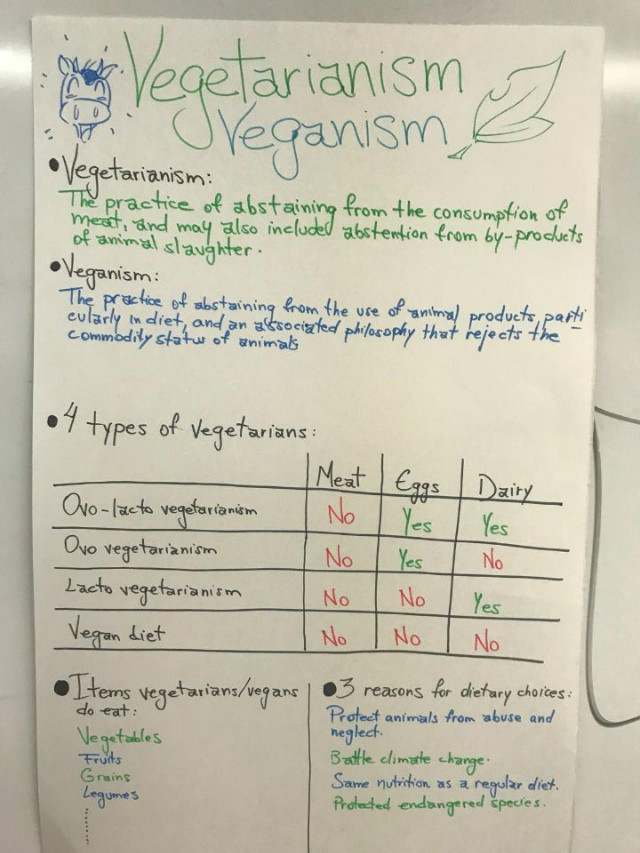 Vegetarianism
Veganism
•Vegetarianism:
The practice of abstaining from the consumption of
meat, and may also included abstention from by-products
of animal slaughter.
•Veganism:
The practice of abstaining from the use of animal products, parti
cularly in diet, and an associated philosophy that rejects the
commodity status of animals
•4 types of vegetarians:
Meat Eggs Dairy
Ovo-lacto vegetarianism No Yes Yes
Ovo vegetarianism No Yes No
Lacto vegetarianism No No Yes
Vegan diet No No No
•Items vegetarians/vegans
do eat:
Vegetables
Fruits
Grains
Legumes
•3 reasons for dietary choices:
Protect animals from abuse and
neglect.
Battle climate change.
Same nutrition as a regular diet.
Protected endangered species.